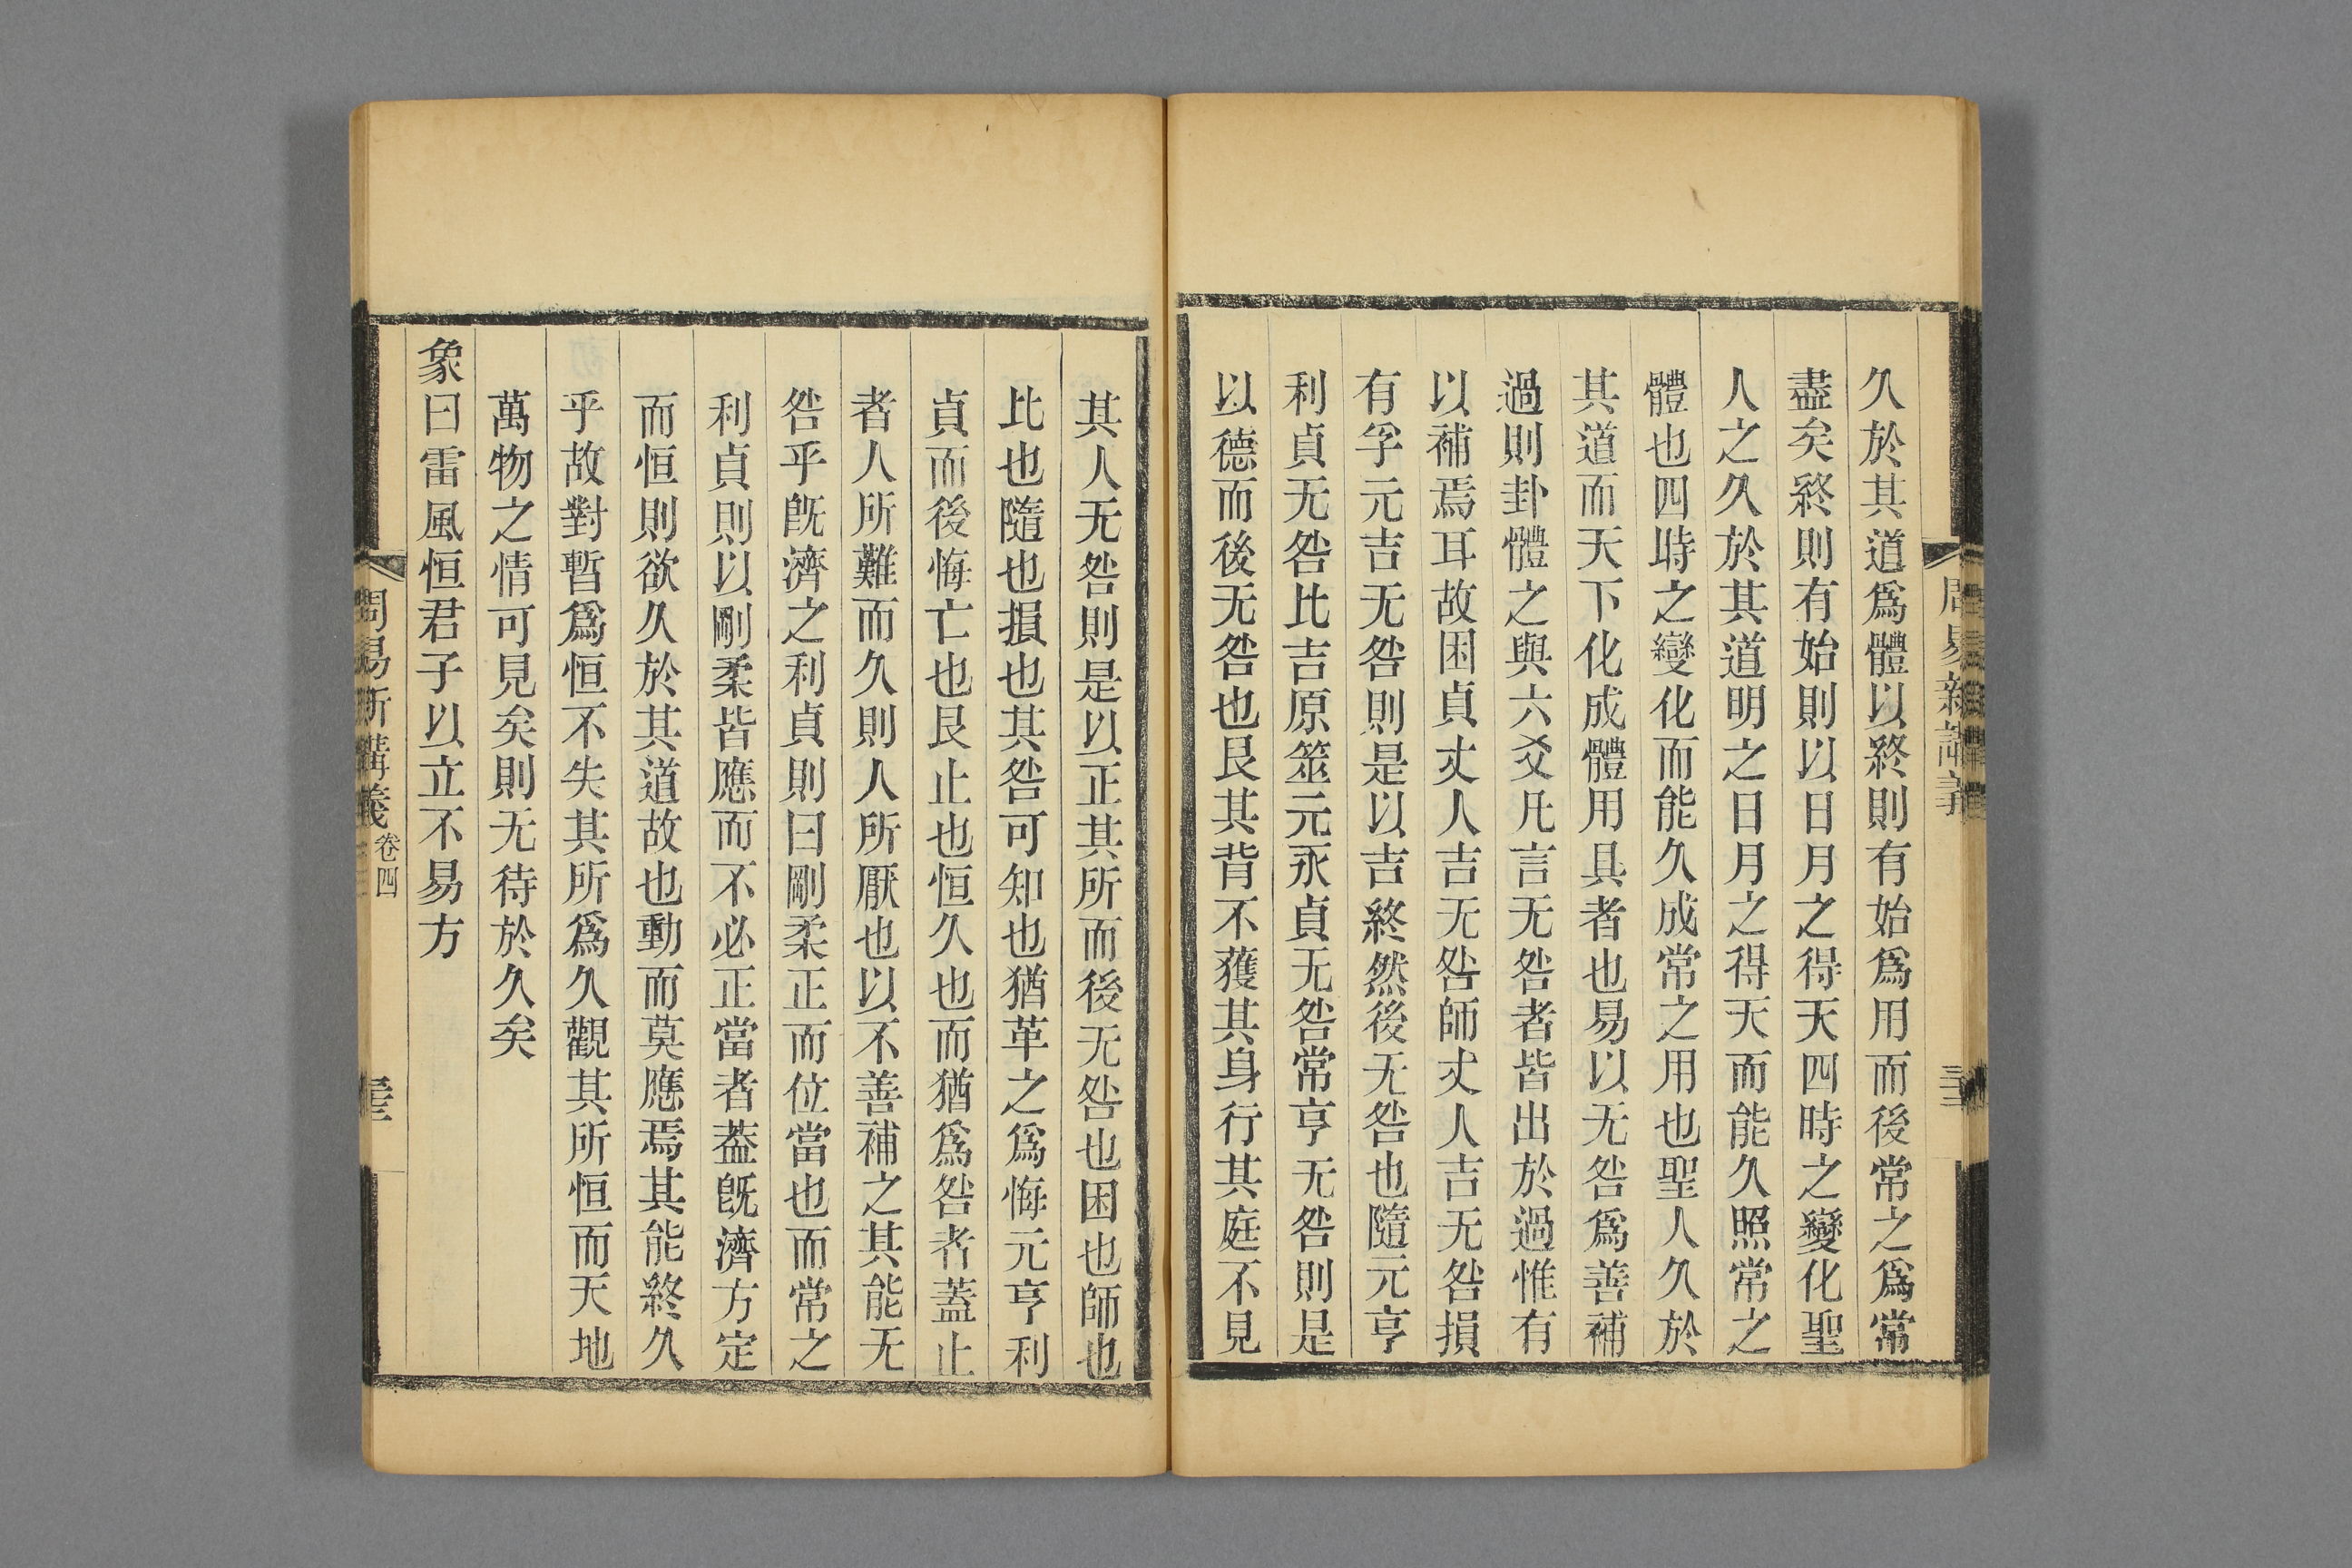 久於其道爲體以終則有始爲用而後常之爲常
盡矣終則有始則以日月之得天四時之變化聖
人之久於其道明之日月之得天而能久照常之
體也四時之變化而能久成常之用也聖人久於
其道而天下化成體用具者也易以无咎爲善補
過則卦體之與六爻凡言无咎者皆出於過惟有
以補焉耳故困貞丈人吉无咎師丈人吉无咎損
有孚元吉无咎則是以吉終然後无咎也隨元亨
利貞无咎比吉原筮元永貞无咎常亨无咎則是
以德而後无咎也艮其背不獲其身行其庭不見
其人无咎則是以正其所而後无咎也困也師也
比也隨也損也其咎可知也猶革之爲悔元亨利
貞而後悔亡也艮止也恒久也而猶爲咎者蓋止
者人所難而久則人所厭也以不善補之其能无
咎乎旣濟之利貞則曰剛柔正而位當也而常之
利貞則以剛柔皆應而不必正當者葢旣濟方定
而恒則欲久於其道故也動而莫應焉其能終久
乎故對暫爲恒不失其所爲久觀其所恒而天地
萬物之情可見矣則无待於久矣
象曰雷風恒君子以立不易方
周易新講義 卷四